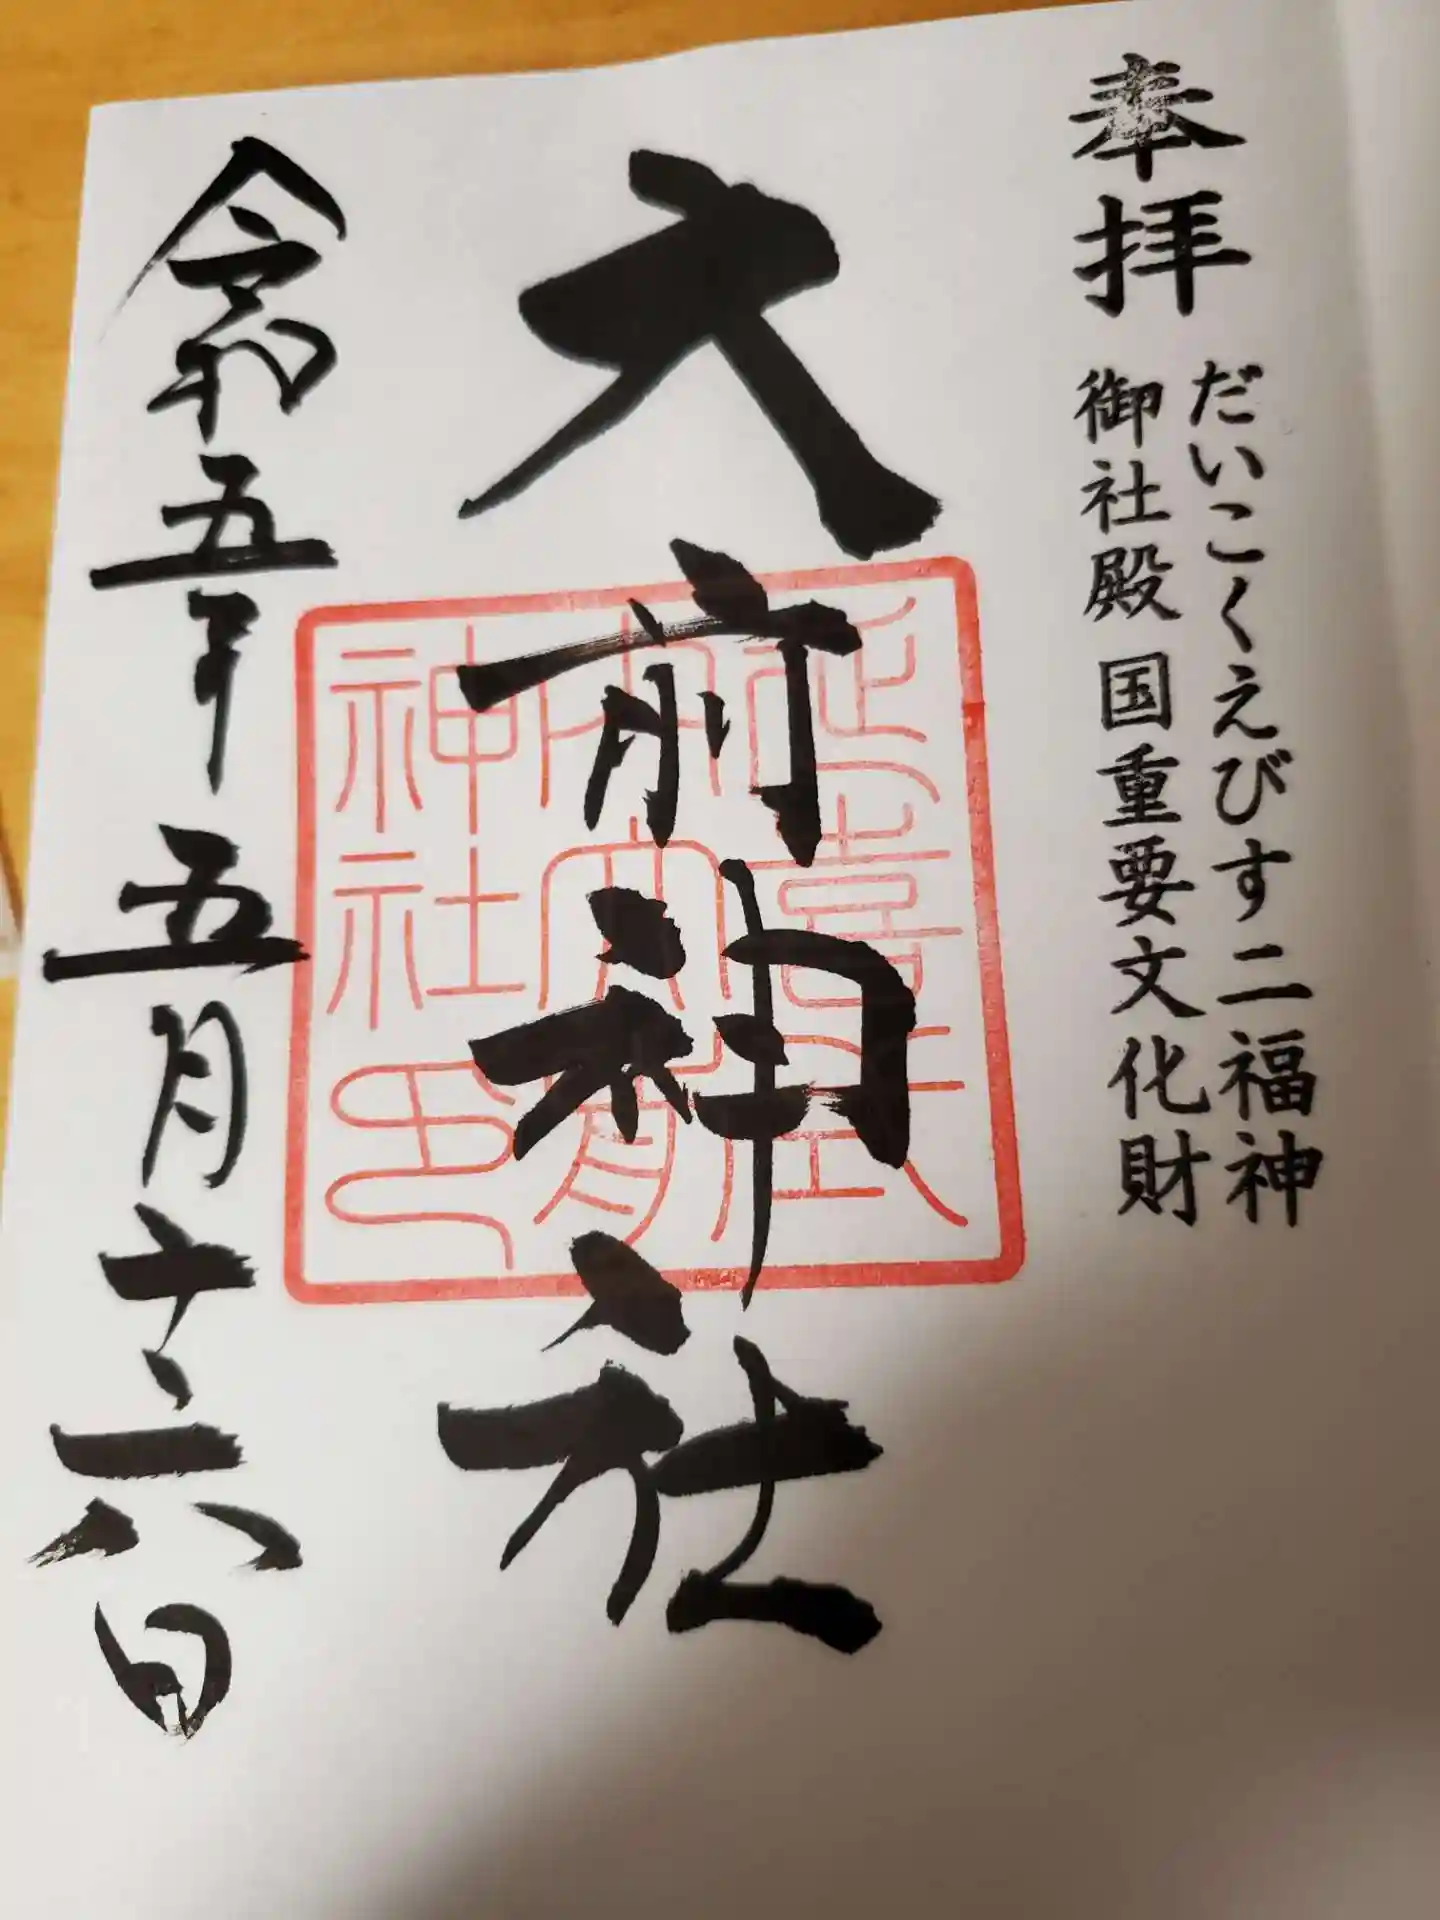 奉拝
だいこくえびす二福神
御社殿 国重要文化財
大前神社
延喜式
内大前
神社印
令和五年五月十六日